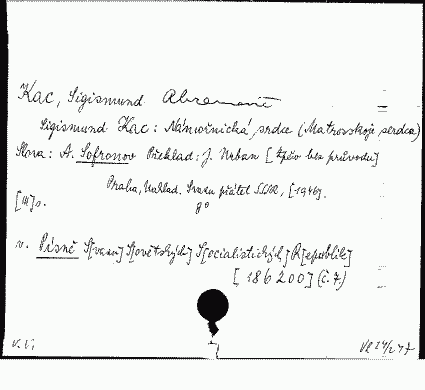 Kac, Sigismund Abramovič
Sigismund Kac: Námořnická srdce (Matrosskoje serdca)
Slova: A. Sofronov Překlad: J. Urban [Zpěv bez průvodu]
Praha, Naklad. Svazu přátel SSSR, [1946].
8°
[III] s.
v. Písně S[vazu] S[ovětských] S[ocialistických] R[epublik]
[186200] (č. 7)
V. Vi